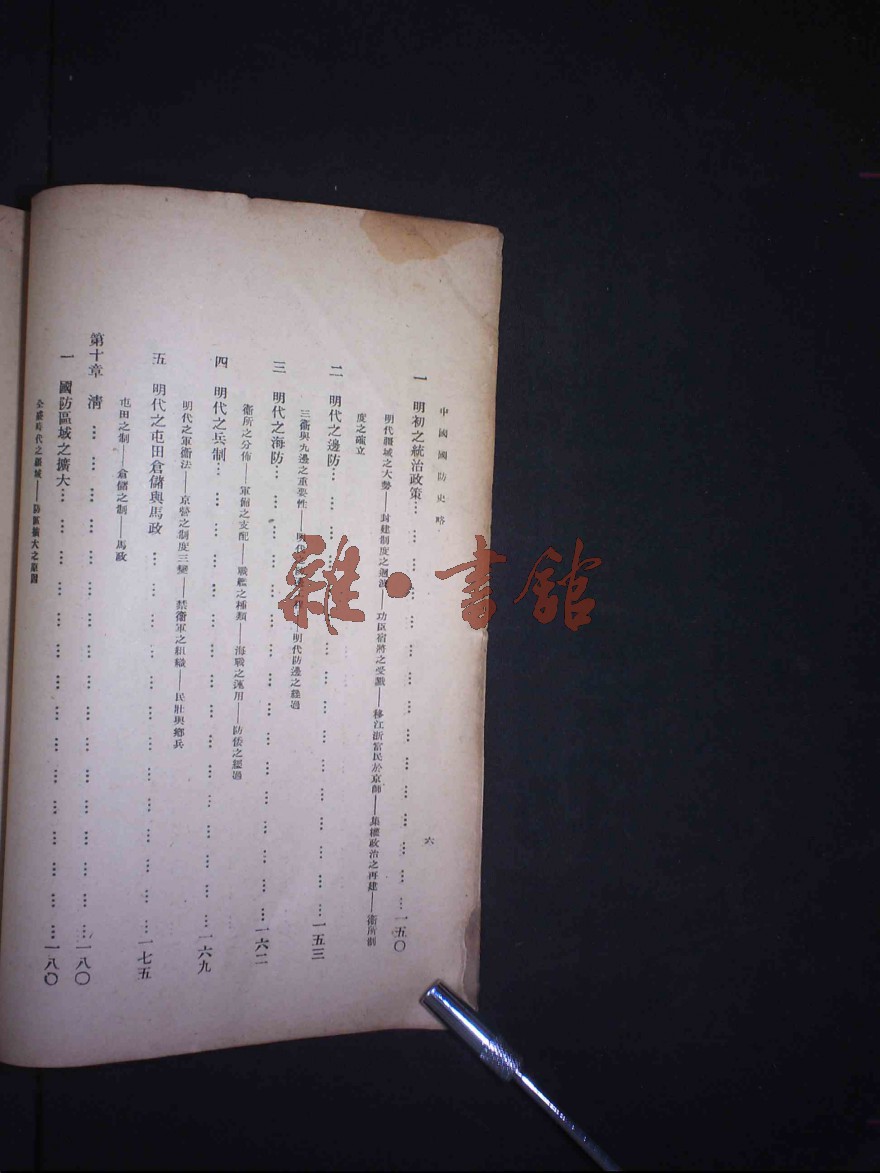 中國國防史略
六
一 明初之統治政策…………一五〇
明代疆域之大勢——封建制度之遡源——功臣宿將之受戮——移江浙富民於京師——集權政治之再建——衞所制
度之確立
二 明代之邊防…………一五三
三衞與九邊之重要性——明代 明代防邊之經過
三 明代之海防…………一六二
衞所之分佈——軍備之支配——戰艦之種類——海戰之運用——防倭之經過
四 明代之兵制…………一六九
明代之軍衞法——京營之制度三變——禁衞軍之組織——民壯與鄉兵
五 明代之屯田倉儲與馬政…………一七五
屯田之制——倉儲之制——馬政
第十章 清…………一八〇
一 國防區域之擴大…………一八〇
全盛時代之疆域——防區擴大之原因
雜·書館